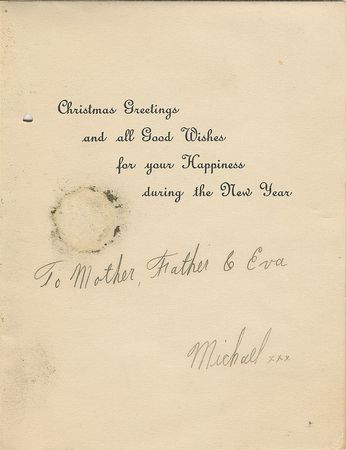 Christmas Greetings
and all Good Wishes
for your Happiness
during the New Year
To Mother, Father & Eva
Michael xxx